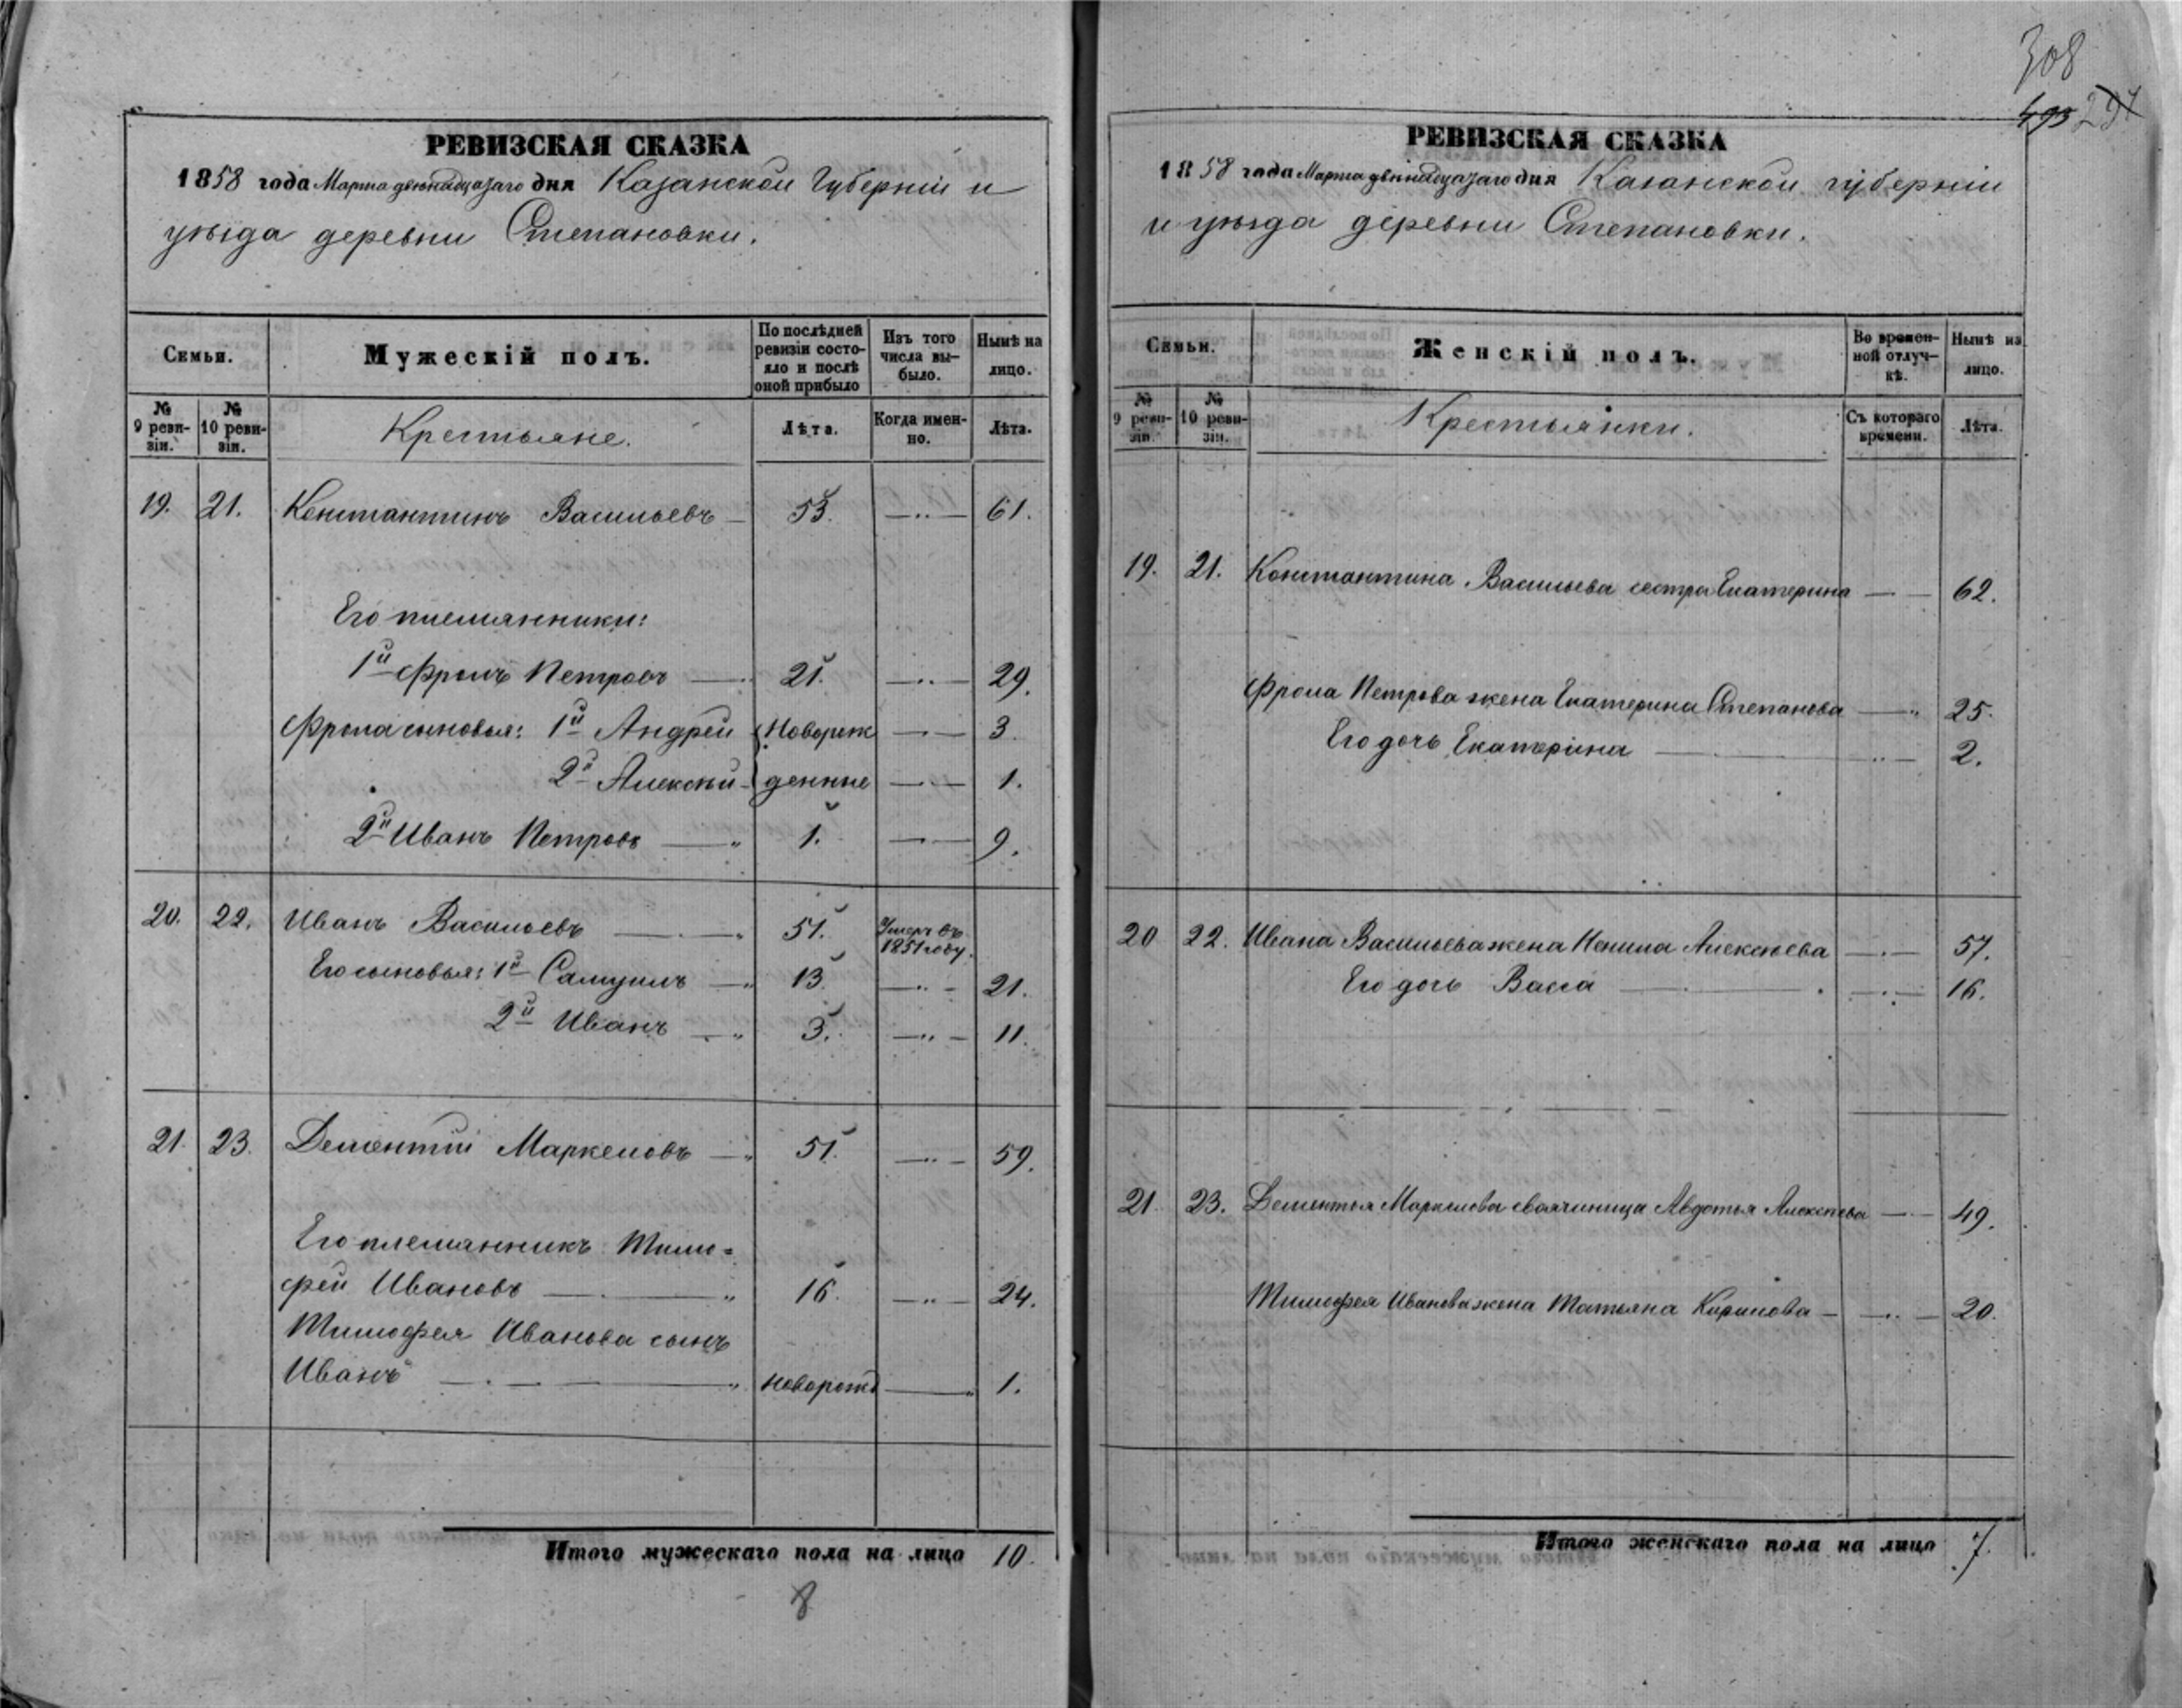 308
493 297
РЕВИЗСКАЯ СКАЗКА
1858 года Марта двѣнадцатаго дня Казанской Губерніи и
уѣзда деревни Степановки.
Семьи.
Мужескій полъ.
По послѣдней ревизіи состояло и послѣ оной прибыло
Изъ того числа выбыло.
Нынѣ на лицо.
№ 9 ревизіи.
№ 10 ревизіи.
Крестьяне.
Лѣта.
Когда именно.
Лѣта.
19. 21. Константинъ Васильевъ — 53. —"— 61.
Его племянники:
1й Фролъ Петровъ — 21. —"— 29.
Фрола сыновья: 1й Андрей {Новорож —"— 3.
2й Алексѣй — денные —"— 1.
2й Иванъ Петровъ —" 1. —"— 9.
20. 22. Иванъ Васильевъ —" 51. Умеръ въ 1851 году.
Его сыновья: 1й Самуилъ —" 13. —"— 21.
2й Иванъ —" 3. —"— 11.
21. 23. Дементій Маркеловъ —" 51. —"— 59.
Его племянникъ Тимо=
фей Ивановъ —" 16. —"— 24.
Тимофея Иванова сынъ
Иванъ —" новорожд —" 1.
Итого мужескаго пола на лицо 10.
8
РЕВИЗСКАЯ СКАЗКА
1858 года Марта двѣнадцатаго дня Казанской губерніи
и уѣзда деревни Степановки.
Семьи.
Женскій полъ.
Во временной отлучкѣ.
Нынѣ на лицо.
№ 9 ревизіи.
№ 10 ревизіи.
Крестьянки.
Съ котораго времени.
Лѣта.
19. 21. Константина Васильева сестра Екатерина — — 62.
Фрола Петрова жена Екатерина Степанова —" 25.
Его дочь Екатерина — "— 2.
20 22. Ивана Васильева жена Ненила Алексѣева —"— 57.
Его дочь Васса — —"— 16.
21. 23. Дементья Маркелова своячиница Авдотья Алексѣева —"— 49.
Тимофея Иванова жена Татьяна Кирилова — —"— 20.
Итого женскаго пола на лицо 7.